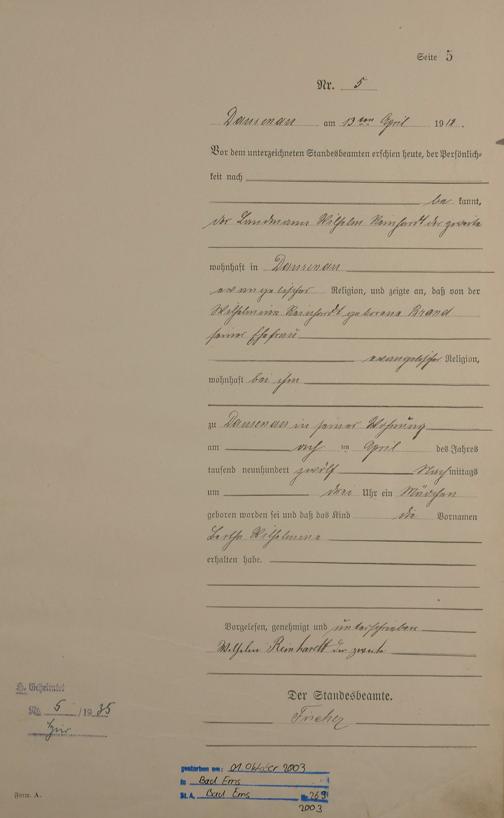 Seite 5
Nr. 5
Dausenau am 13ten April 1912.
Vor dem unterzeichneten Standesbeamten erschien heute, der Persönlich-
keit nach
be kannt,
der Landmann Wilhelm Reinhardt der zweite
wohnhaft in Dausenau
evangelischer Religion, und zeigte an, daß von der
Wilhelmine Reinhardt geborene Brand
seiner Ehefrau
evangelischer Religion,
wohnhaft bei ihm
zu Dausenau in seiner Wohnung
am April des Jahres
tausend neunhundert zwölf Nachmittags
um drei Uhr ein Mädchen
geboren worden sei und daß das Kind die Vornamen
Bertha Wilhelmine
erhalten habe.
Vorgelesen, genehmigt und unterschrieben
Wilhelm Reinhardt der zweite
Der Standesbeamte.
H. Geheiratet
Nr. 5 / 19 35
gestorben am: 01. Oktober 2003
in Bad Ems
St. A. Bad Ems Nr. 269
2003
Form. A.